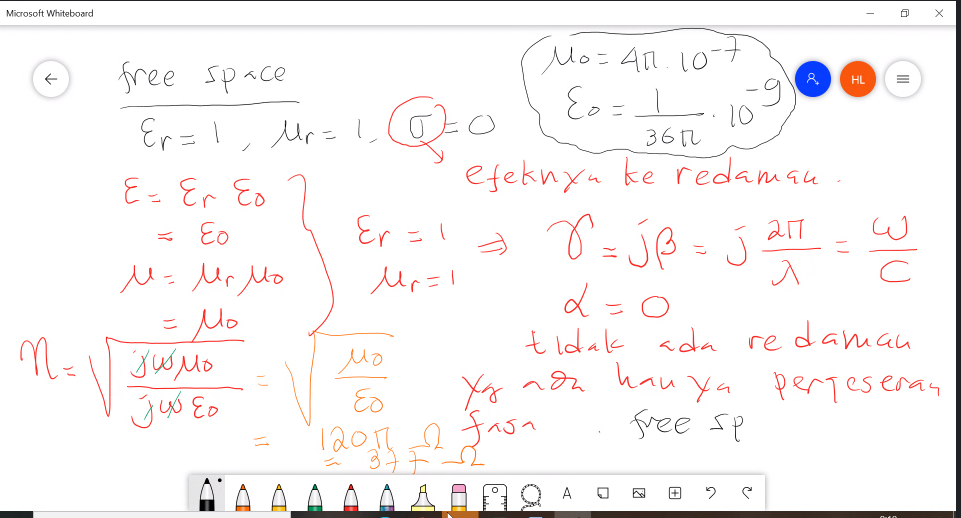 Microsoft Whiteboard
free space
μ₀ = 4π · 10⁻⁷
ε₀ = 1/36π · 10⁻⁹
HL
εr = 1, μr = 1, σ = 0
efeknya ke redaman.
ε = εr ε₀
= ε₀
μ = μr μ₀
= μ₀
εr = 1
μr = 1
⇒ γ = jβ = j 2π/λ = ω/c
α = 0
tidak ada redaman
yg ada hanya pergeseran
fasa . free sp
η = √(jωμ₀/jωε₀) = √(μ₀/ε₀)
= 120π Ω
= 377 Ω
A